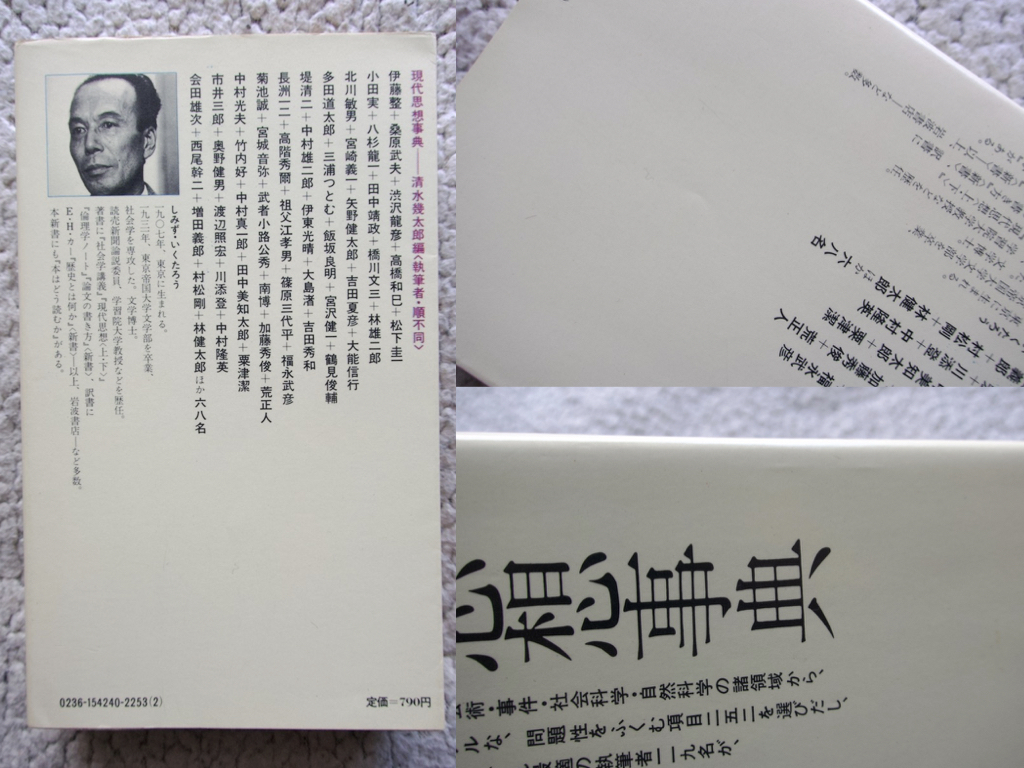 現代思想事典――清水幾太郎編〈執筆者・順不同〉
伊藤整+桑原武夫+渋沢龍彦+高橋和巳+松下圭一
小田実+八杉龍一+田中靖政+橋川文三+林雄二郎
北川敏男+宮崎義一+矢野健太郎+吉田夏彦+大能信行
多田道太郎+三浦つとむ+飯坂良明+宮沢健一+鶴見俊輔
堤清二+中村雄二郎+伊東光晴+大島渚+吉田秀和
長洲一二+高階秀爾+祖父江孝男+篠原三代平+福永武彦
菊池誠+宮城音弥+武者小路公秀+南博+加藤秀俊+荒正人
中村光夫+竹内好+中村真一郎+田中美知太郎+粟津潔
市井三郎+奥野健男+渡辺照宏+川添登+中村隆英
会田雄次+西尾幹二+増田義郎+村松剛+林健太郎ほか六八名
しみず・いくたろう
一九〇七年、東京に生まれる。
一九三一年、東京帝国大学文学部を卒業、
社会学を専攻した。文学博士。
読売新聞論説委員、学習院大学教授などを歴任。
著書に『社会学講義』『現代思想〈上・下〉』
『倫理学ノート』『論文の書き方』〈新書〉、訳書に
E・H・カー『歴史とは何か』〈新書〉―以上、岩波書店―など多数。
本新書にも『本はどう読むか』がある。
0236-154240-2253(2)
定価=790円
村松剛+林健太郎ほか六八名
川添登+中村隆英
粟津潔
加藤秀俊+荒正人
福永武彦
想事典
術・事件・社会科学・自然科学の諸領域から、
ルな、問題性をふくむ項目二五二を選びだし、
適の執筆者一一九名が、